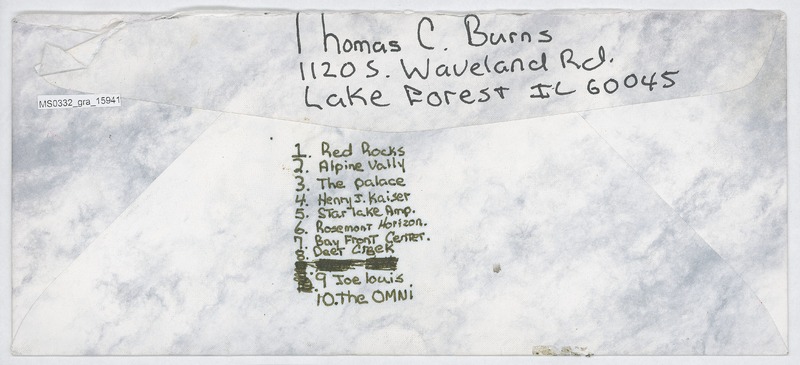 Thomas C. Burns
1120 S. Waveland Rd.
Lake Forest IL 60045
MS0332_gra_15941
1. Red Rocks
2. Alpine Vally
3. The palace
4. Henry J. Kaiser
5. Star lake Amp.
6. Rosemont Horizon.
7. Bay Front Center.
8. Deer Creek
9 Joe louis.
10. The OMNi